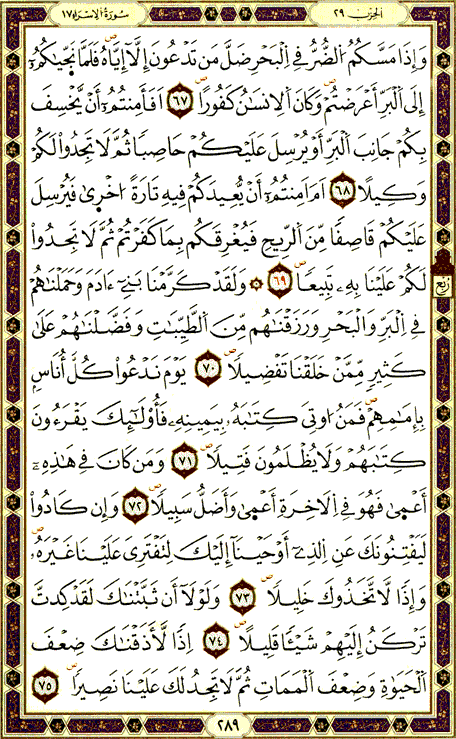 سورة الإسراء ١٧ الحزب ٢٩
وَإِذَا مَسَّكُمُ الضُّرُّ فِي الْبَحْرِ ضَلَّ مَن تَدْعُونَ إِلَّا إِيَّاهُ فَلَمَّا نَجَّيٰكُمُۥٓ
إِلَى الْبَرِّ أَعْرَضْتُمْ وَكَانَ الْإِنسَٰنُ كَفُورًا ٦٧ اَفَأَمِنتُمُۥٓ أَنْ يَّخْسِفَ
بِكُمْ جَانِبَ الْبَرِّ أَوْ يُرْسِلَ عَلَيْكُمْ حَاصِبًا ثُمَّ لَا تَجِدُواْ لَكُمْ
وَكِيلًا ٦٨ اَمَ اَمِنتُمُۥٓ أَنْ يُّعِيدَكُمْ فِيهِ تَارَةً اُخْرٜىٰ فَيُرْسِلَ
عَلَيْكُمْ قَاصِفًا مِّنَ الرِّيحِ فَيُغْرِقَكُم بِمَا كَفَرْتُمْ ثُمَّ لَا تَجِدُواْ
لَكُمْ عَلَيْنَا بِهِۦ تَبِيعًا ٦٩ ۞ وَلَقَدْ كَرَّمْنَا بَنِےٓ ءَادَمَ وَحَمَلْنَٰهُمْ
فِي الْبَرِّ وَالْبَحْرِ وَرَزَقْنَٰهُم مِّنَ الطَّيِّبَٰتِ وَفَضَّلْنَٰهُمْ عَلَىٰ
كَثِيرٍ مِّمَّنْ خَلَقْنَا تَفْضِيلًا ٧٠ يَوْمَ نَدْعُواْ كُلَّ أُنَاسٍ
بِإِمَٰمِهِمْ فَمَنُ اوتِيَ كِتَٰبَهُۥ بِيَمِينِهِۦ فَأُوْلَٰٓئِكَ يَقْرَءُونَ
كِتَٰبَهُمْ وَلَا يُظْلَمُونَ فَتِيلًا ٧١ وَمَن كَانَ فِي هَٰذِهِۦٓ
أَعْمٜىٰ فَهُوَ فِي الْاَخِرَةِ أَعْمٜىٰ وَأَضَلُّ سَبِيلًا ٧٢ وَإِن كَادُواْ
لَيَفْتِنُونَكَ عَنِ الَّذِےٓ أَوْحَيْنَآ إِلَيْكَ لِتَفْتَرِيَ عَلَيْنَا غَيْرَهُۥ
وَإِذًا لَّاتَّخَذُوكَ خَلِيلًا ٧٣ وَلَوْلَآ أَن ثَبَّتْنَٰكَ لَقَدْ كِدتَّ
تَرْكَنُ إِلَيْهِمْ شَيْـًٔا قَلِيلًا ٧٤ اِذًا لَّأَذَقْنَٰكَ ضِعْفَ
الْحَيَوٰةِ وَضِعْفَ الْمَمَاتِ ثُمَّ لَا تَجِدُ لَكَ عَلَيْنَا نَصِيرًا ٧٥
ربع
٢٨٩